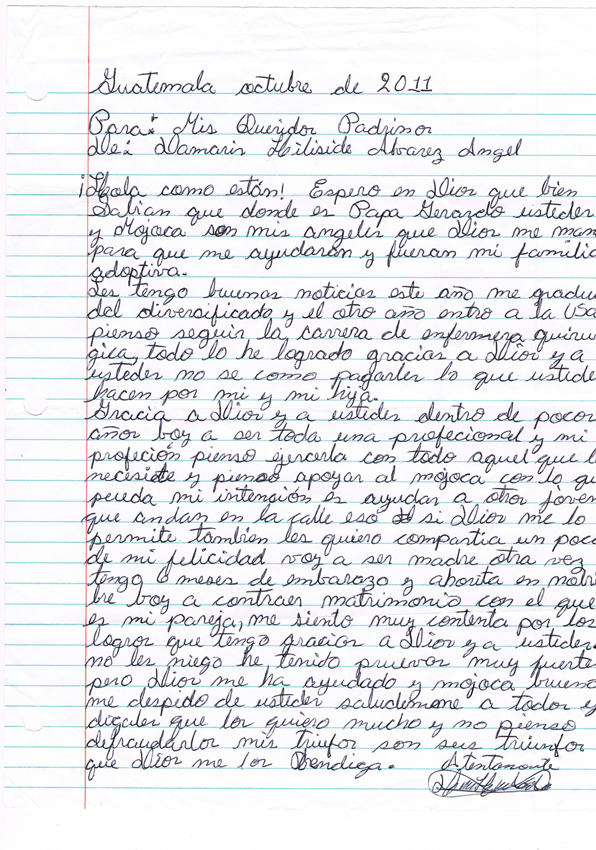 Guatemala octubre de 2011
Para: Mis Queridos Padrinos
De: Damaris Hiliside Alvarez Angel
¡Hola como están! Espero en Dios que bien
Sabian que donde es Papa Gerardo ustedes
y Mojoca son mis angeles que Dios me man
para que me ayudaran y fueran mi familia
adoptiva.
Les tengo buenas noticias este año me gradu
del diversificado y el otro año entro a la USA
pienso seguir la carrera de enfermera quirur
gica, todo lo he logrado gracias a Dios y a
ustedes no se como pagarles lo que ustede
hacen por mi y mi hija.
Gracia a Dios y a ustedes dentro de pocos
años boy a ser toda una profecional y mi
profeción pienso ejercerla con todo aquel que l
necesite y pienso apoyar al mojoca con lo qu
pueda mi intención es ayudar a otros joven
que andan en la calle eso si Dios me lo
permite tambien les quiero compartia un poco
de mi felicidad voy a ser madre otra vez
tengo meses de embarazo y ahorita en
bre boy a contraer matrimonio con el que
es mi pareja, me siento muy contenta por los
logros que tengo gracias a Dios y a ustedes.
no les niego he tenido pruevas muy fuerte
pero Dios me ha ayudado y mojoca bueno
me despido de ustedes saludemone a todos y
digales que los quiero mucho y no pienso
defraudarlos mis triufos son sus triunfos
que Dios me los Bendiga. Atentamente